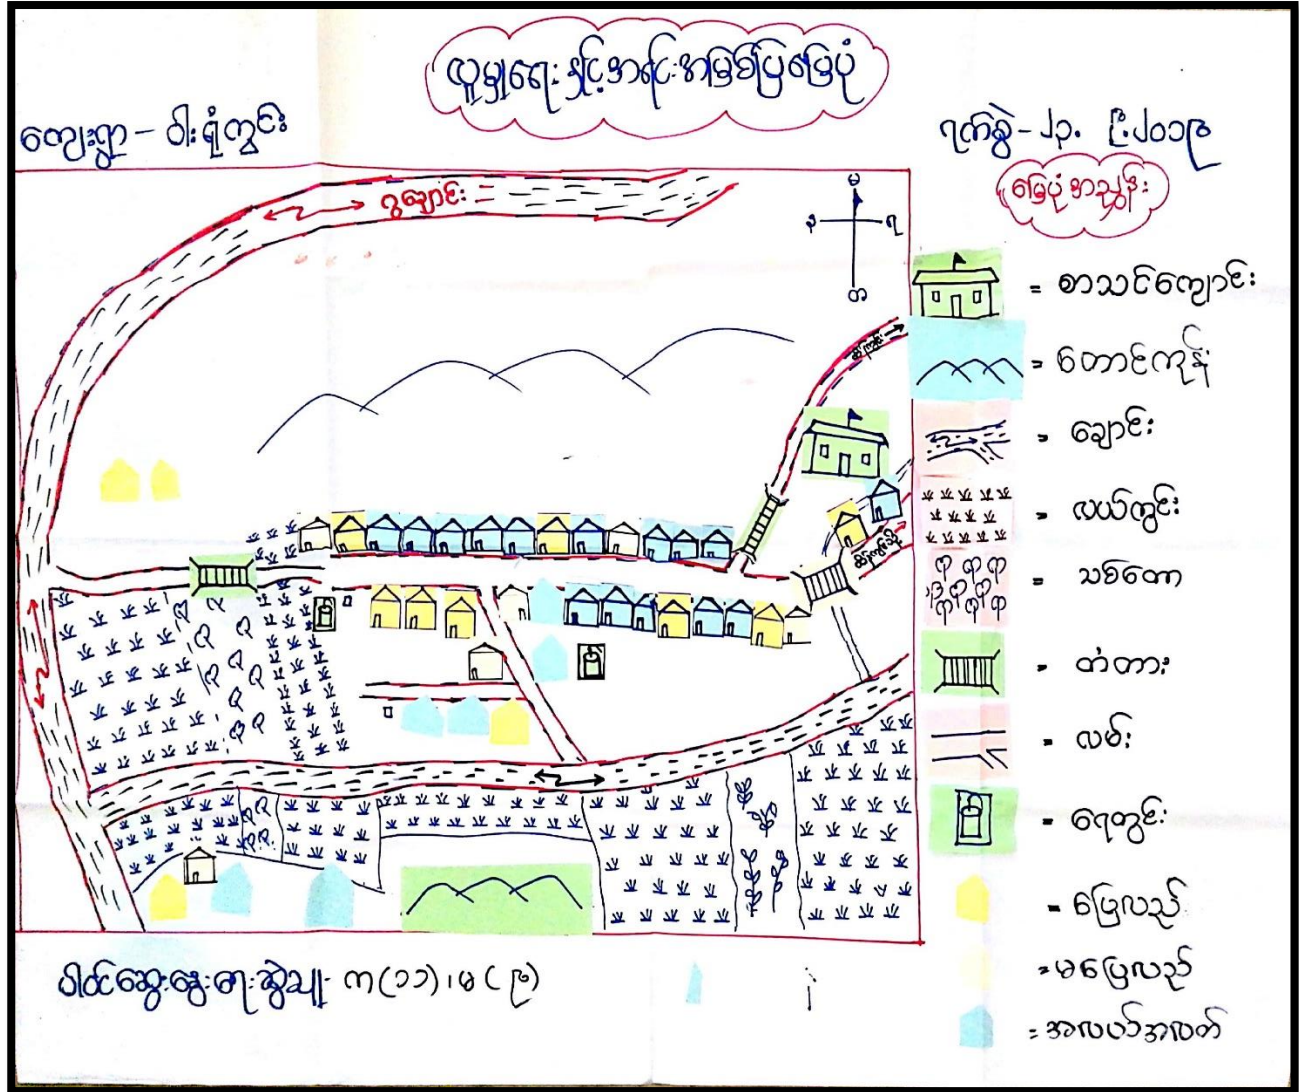 လူမှုရေးနှင့်အရင်းအမြစ်ပြမြေပုံ
ကျေးရွာ - ဝါးရုံကွင်း
ရက်စွဲ - ၂၃. ၆.၂၀၁၉
မြေပုံအညွှန်း
ဂွချောင်း
မ
န
ရ
တ
= စာသင်ကျောင်း
= တောင်ကုန်း
= ချောင်း
= လယ်ကွင်း
= သစ်တော
= တံတား
= လမ်း
= ရေတွင်း
= ပြေလည်
= မပြေလည်
= အလယ်အလတ်
ပါဝင်ဆွေးနွေးရေးဆွဲသူ - က(၁၁)၊ မ(၉)